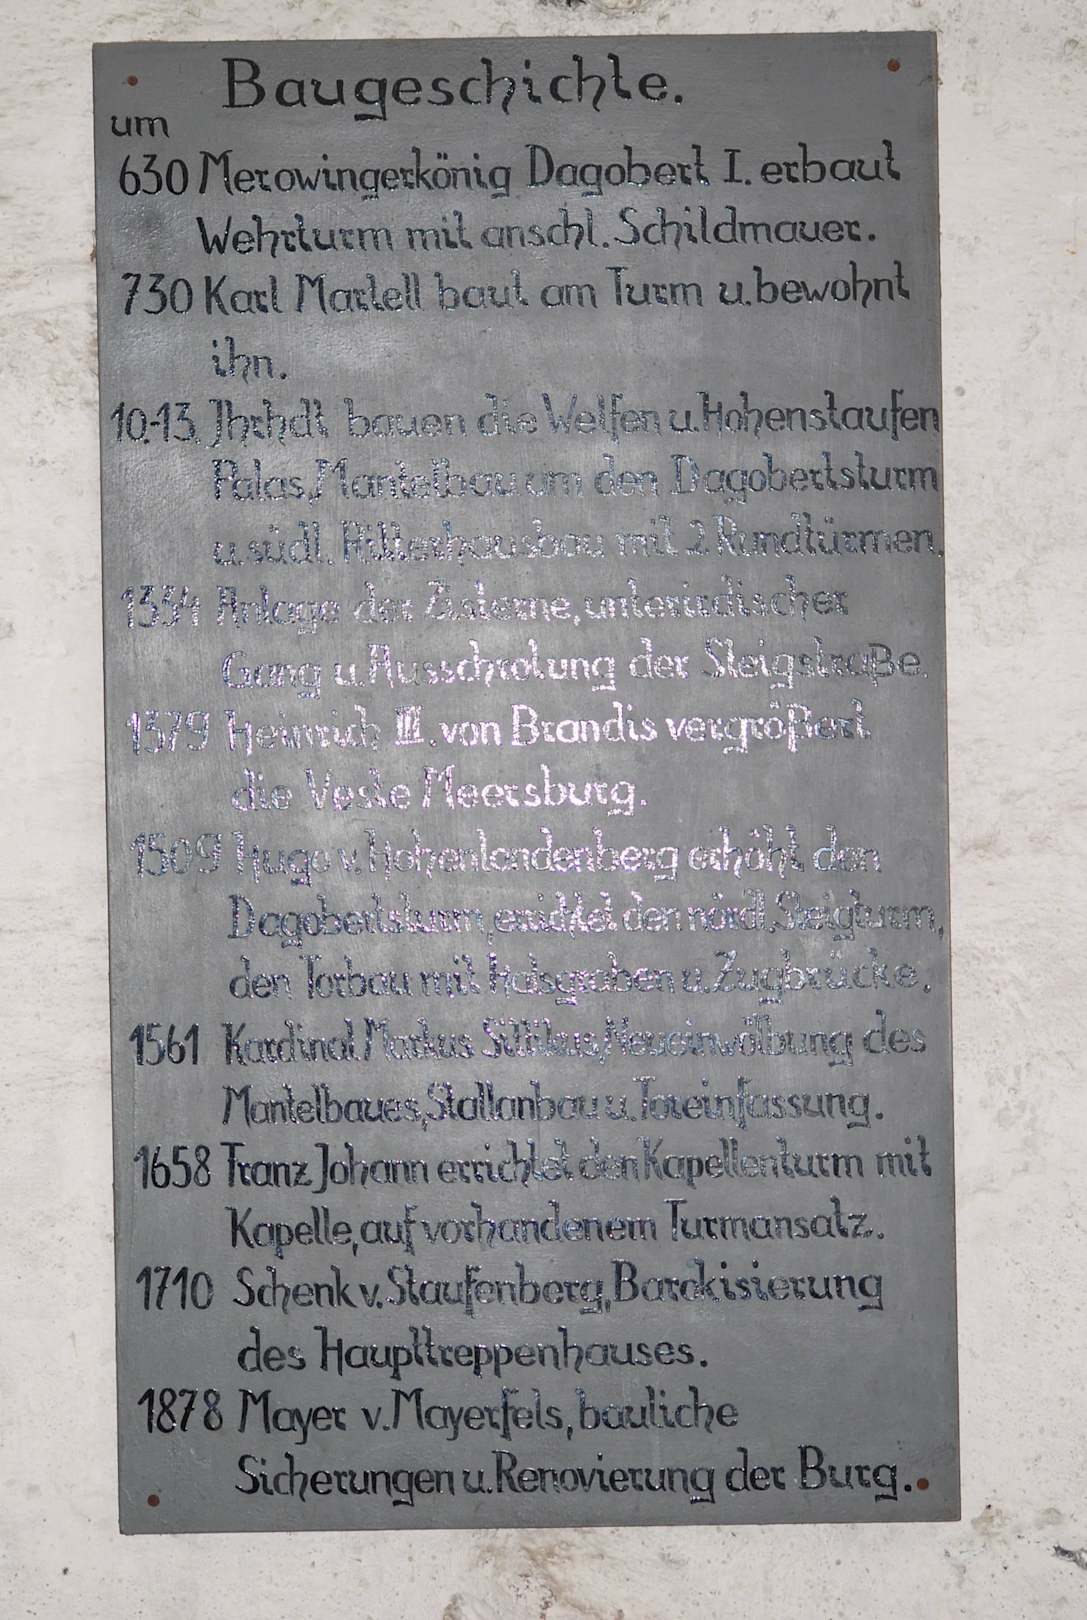 Baugeschichte.
um
630 Merowingerkönig Dagobert I. erbaut
Wehrturm mit anschl. Schildmauer.
730 Karl Martell baut am Turm u. bewohnt
ihn.
10.-13. Jhrhdt bauen die Welfen u. Hohenstaufen
Palas, Mantelbau um den Dagobertsturm
u. südl. Ritterhausbau mit 2 Rundtürmen.
1334 Anlage der Zisterne, unterirdischer
Gang u. Ausschrotung der Steigstraße.
1379 Heinrich III. von Brandis vergrößert
die Veste Meersburg.
1509 Hugo v. Hohenlandenberg erhöht den
Dagobertsturm, errichtet den nördl. Steigturm,
den Torbau mit Halsgraben u. Zugbrücke.
1561 Kardinal Markus Sittikus, Neueinwölbung des
Mantelbaues, Stallanbau u. Toreinfassung.
1658 Franz Johann errichtet den Kapellenturm mit
Kapelle, auf vorhandenem Turmansatz.
1710 Schenk v. Staufenberg, Barokisierung
des Haupttreppenhauses.
1878 Mayer v. Mayerfels, bauliche
Sicherungen u. Renovierung der Burg.